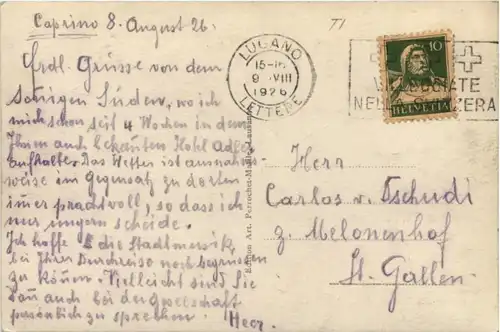 Caprino 8. August 26.
Frdl. Grüsse von dem
sonigen Süden, wo ich
mich schon seit 4 Wochen in dem
Ihnen auch bekanten Hotel Adler
aufhalte. Das Wetter ist ausnahms-
weise im Gegensatz zu dorten
imer prachtvoll, so dass ich
nur ungern scheide.
Ich hoffe die
bei Ihrer Durchreise noch begrüssen
zu können. Vielleicht sind Sie
dan auch bei der Gesellschaft
persönlich zu sprechen. Heer.
TI
LUGANO
15-16
9. VIII
1926
LETTERE
10
HELVETIA
Edition Art. Perrochet-Matile, Lausanne
Herr
Carlos v. Tschudi
z. Melonenhof
St. Gallen